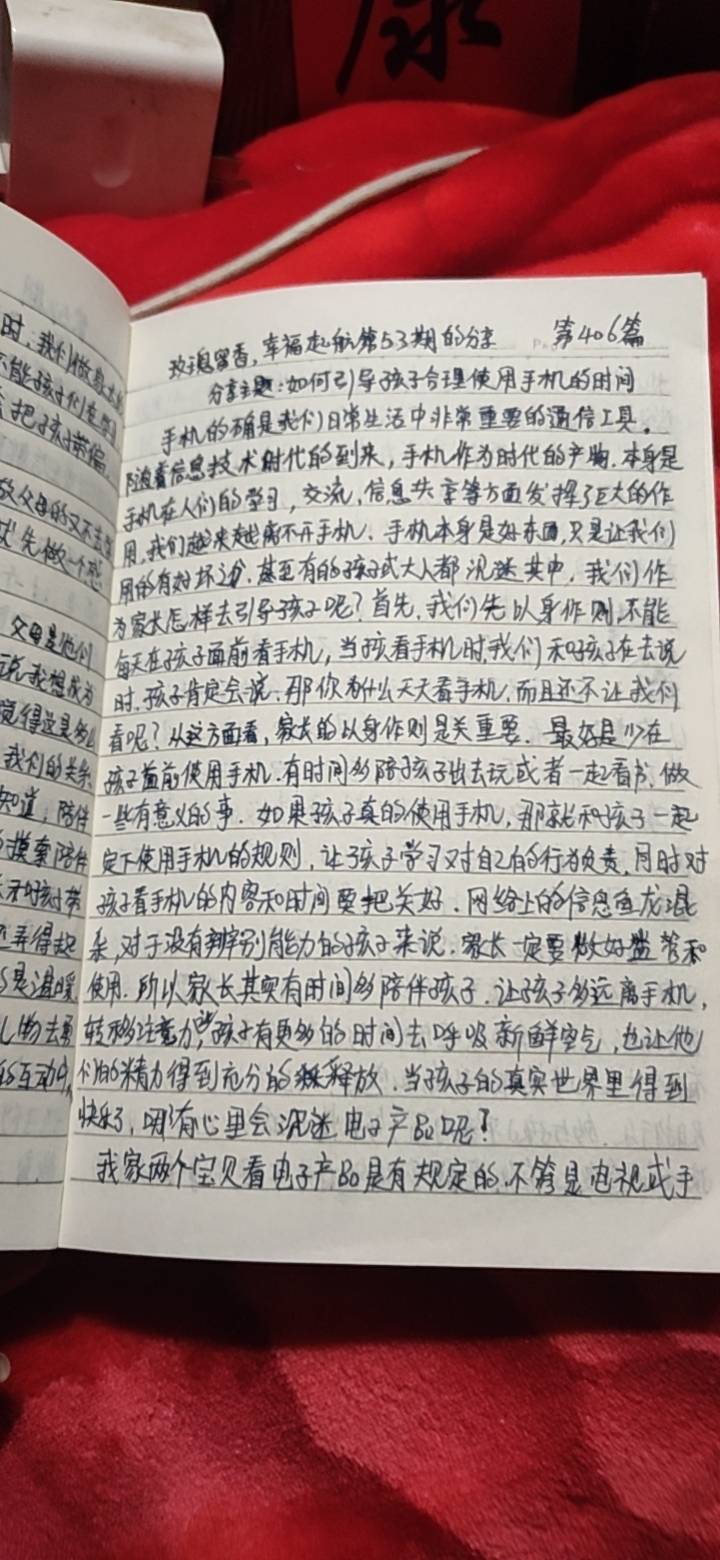 康
时,我们做
不能孩子们在
把孩子带偏
父母的又不去
先做一个
父母是他们
说我想成为
觉得这是多么
我们的关系
知道,陪伴
摸索陪伴
弄得起
是温暖
的互动中,
玫瑰留香,幸福起航第53期的分享 第406篇
分享主题:如何引导孩子合理使用手机的时间
手机的确是我们日常生活中非常重要的通信工具。
随着信息技术时代的到来,手机作为时代的产物.本身是
手机在人们的学习,交流,信息共享等方面发挥了巨大的作
用,我们越来越离不开手机.手机本身是好东西,只是让我们
用的有好坏之分.甚至有的孩子或大人都沉迷其中,我们作
为家长怎样去引导孩子呢?首先,我们先以身作则,不能
每天在孩子面前看手机,当孩看手机时,我们和孩子在去说
时.孩子肯定会说.那你为什么天天看手机,而且还不让我们
看呢?从这方面看,家长的以身作则是关重要.最好是少在
孩子面前使用手机.有时间多陪孩子出去玩或者一起看书.做
一些有意义的事.如果孩子真的使用手机,那就和孩子一起
定下使用手机的规则,让孩子学习对自己的行为负责,同时对
孩子看手机的内容和时间要把关好.网络上的信息鱼龙混
杂,对于没有辨别能力的孩子来说.家长一定要做好监管和
使用.所以家长其实有时间多陪伴孩子.让孩子多远离手机,
转移注意力,让孩子有更多的时间去呼吸新鲜空气,也让他
们的精力得到充分的释放.当孩子的真实世界里得到
快乐了,哪有心里会沉迷电子产品呢?
我家两个宝贝看电子产品是有规定的.不管是电视或手